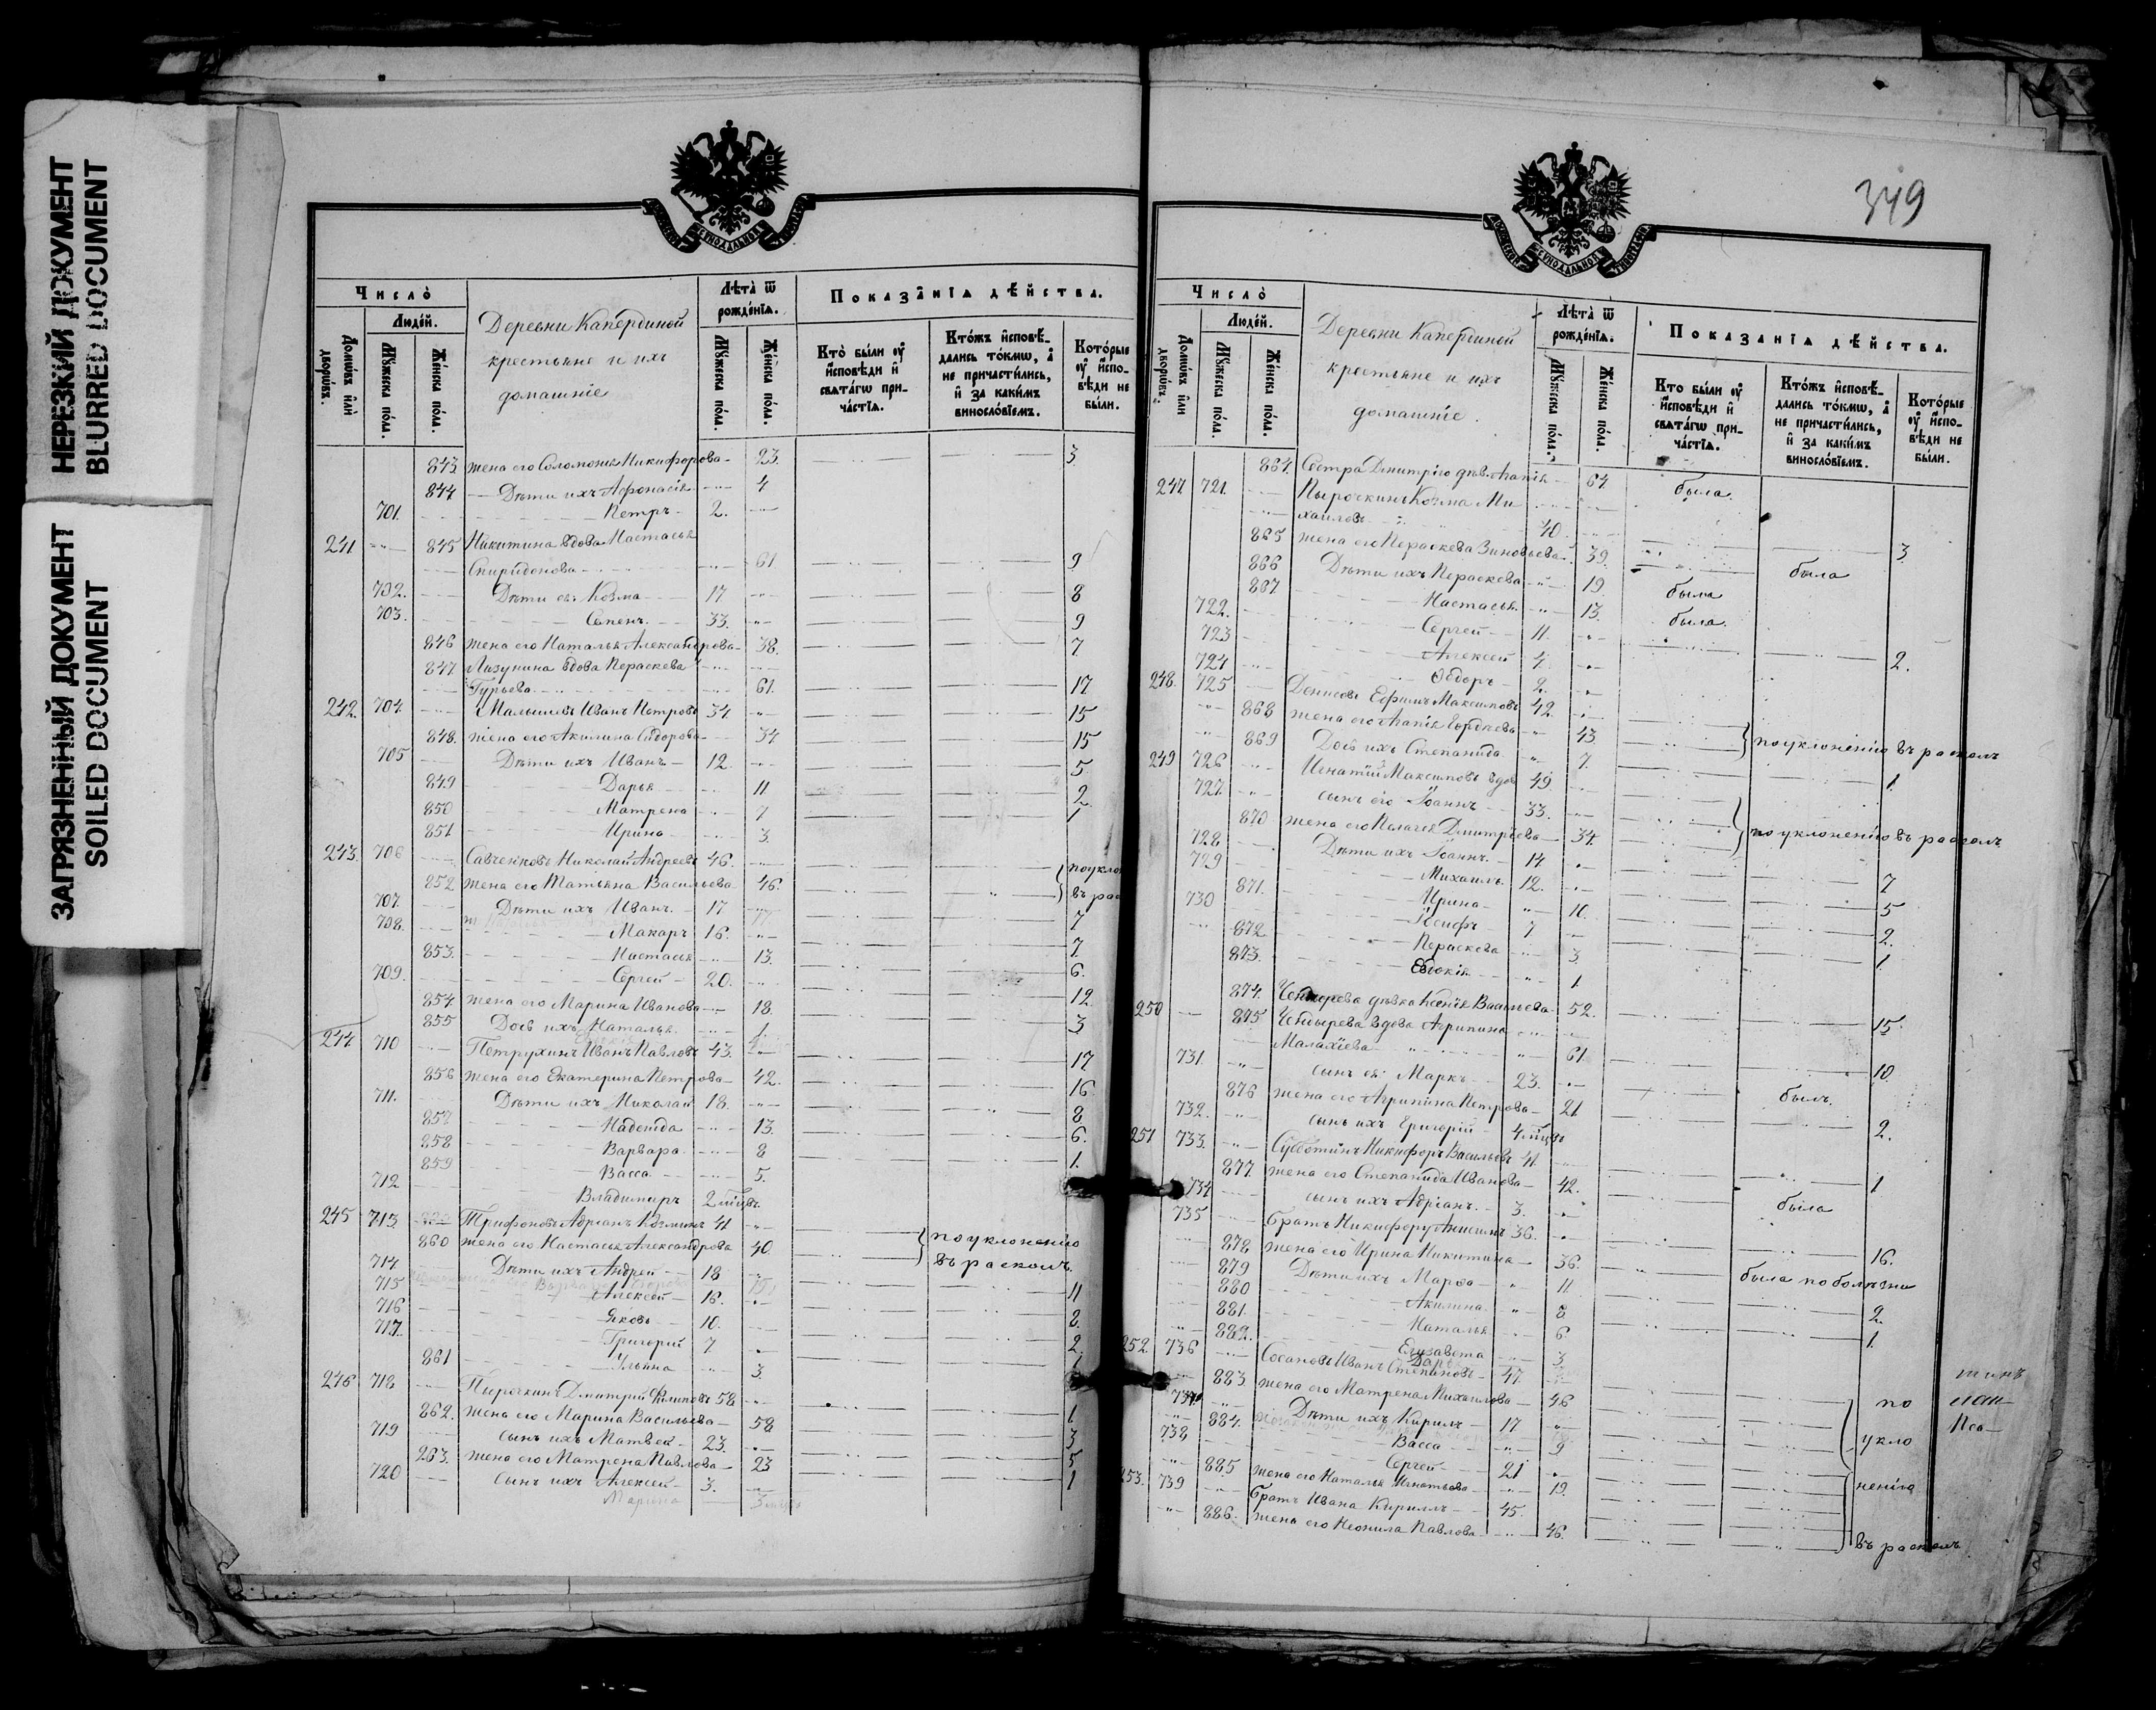 НЕРЕЗКИЙ ДОКУМЕНТ
BLURRED DOCUMENT
ЗАГРЯЗНЕННЫЙ ДОКУМЕНТ
SOILED DOCUMENT
Число̀
Людéй.
Домѡ́въ и҆лѝ дворѡ́въ.
Мꙋ́жеска по́ла.
Же́нска по́ла.
Деревни Капердиной
крестьяне и ихъ
домашніе
Лѣта̀ ѿ рожде́нїѧ.
Мꙋ́жеска по́ла.
Же́нска по́ла.
Показа̑нїѧ дѣ́йства.
Кто̀ бы́ли ᲂу҆ и҆сповѣ́ди и҆ свѧта́гѡ причáстїѧ.
Кто́жъ и҆сповѣ́дались то́кмѡ, а҆ не причасти́лись, и҆ за каки́мъ винослóвїемъ.
Кото́рые ᲂу҆ и҆сповѣ́ди не бы́ли.
843. жена его Соломонія Никифорова 23. 3
844 Дѣти ихъ Афонасія 4
701. Петръ 2.
241 845 Никитина вдова Настасья
Спиридонова 61 9
702. Дѣти ея: Козма 17 8
703. Семенъ. 33. 9
846 жена его Наталья Александрова 38. 7
847 Лазунина вдова Пераскева
Гурьева 61. 17
242. 704. Малышевъ Иванъ Петровъ 34. 15
848. жена его Акилина Сидорова 34 15
705 Дѣти ихъ Иванъ 12. 5
849 Дарья 11. 2.
850 Матрена 7 1
851 Ирина 3.
243. 706 Савченковъ Николай Андреевъ 46. поукло
852 жена его Татьяна Васильева 46. въ рас
707. Дѣти ихъ Иванъ. 17 7
708. Макаръ 16. 7.
853. Настасья 13. 6.
709. Сергей 20. 12.
854 жена его Марина Иванова 18. 3
855 Дочь ихъ Наталья 1.
244 710 Петрухинъ Иванъ Павловъ 43. 17
856 жена его Екатерина Петрова 42. 16.
711. Дѣти ихъ Николай 18. 8
857 Надежда 13. 6.
858 Варвара 8 1.
859 Васса 5.
712 Владимиръ 2 мѣсяцевъ.
245 713 Трифоновъ Адріанъ Козминъ 41 поуклоненію
860 жена его Настасья Александрова 40 въ расколъ.
714 Дѣти ихъ Андрей 18 11
715 Алексей 16. 8.
716 Яковъ 10. 2
717. Григорий 7
861 Ульяна 3.
246 718 Пырочкинъ Дмитрий Филиповъ 58 1
862. жена его Марина Васильева 58 3
719 сынъ ихъ Матвей 23. 5
263. жена его Матрена Павлова 23 1
720 сынъ ихъ Алексей 3.
Марина
349
Число̀
Людéй.
Домѡ́въ и҆лѝ дворѡ́въ.
Мꙋ́жеска по́ла.
Же́нска по́ла.
Деревни Капердиной
крестьяне и ихъ
домашніе.
Лѣта̀ ѿ рожде́нїѧ.
Мꙋ́жеска по́ла.
Же́нска по́ла.
Показа̑нїѧ дѣ́йства.
Кто бы́ли ᲂу҆ и҆сповѣ́ди и҆ свѧта́гѡ причáстїѧ.
Кто́жъ и҆сповѣ́дались то́кмѡ, а҆ не причасти́лись, и҆ за каки́мъ винослóвїемъ.
Кото́рые ᲂу҆ и҆сповѣ́ди не бы́ли.
864. Сестра Дмитрію дѣв. Агапія 64. была.
247 721. Пырочкинъ Козма Ми
хаиловъ 40. 3
865 жена его Пераскева Зиновьева 39. была
866 Дѣти ихъ Пераскева 19. была
867 Настасья 13. была.
722. Сергей 11.
723 Алексей 4. 2.
724 Ѳедоръ 2.
248. 725 Денисовъ Ефимъ Максимовъ 42.
868 жена его Агапія Гордѣева 43. поуклонению въ расколъ
869 Дочь ихъ Степанида 7.
249 726 Игнатий Максимовъ вдов 49. 1
727. сынъ его Іоаннъ 33.
870 жена его Пелагея Дмитріева 34. поуклоненію въ расколъ
728 Дѣти ихъ Іоаннъ. 14
729 Михаилъ. 12. 7
871. Ирина 10. 5
730 Іосифъ 7 2.
872 Пераскева 3 1
873. Евдокія 1
250 874. дѣвка Ксенія Васильева 52. 15.
875 Чендырева вдова Агрипина
Малахіева 61. 10.
731. сынъ ея: Маркъ 23. былъ.
876 жена его Агрипина Петрова 21 2.
732. сынъ ихъ Григорій 4 мѣсяцевъ
251 733. Субботинъ Никифоръ Васильевъ 41. 1
877 жена его Степанида Иванова 42. была
734 сынъ ихъ Адріанъ. 3.
735 Братъ Никифору Анисимъ 36. 16.
878 жена его Ирина Никитина 36. была по болѣзни
879 Дѣти ихъ Марѳа 11. 2.
880 Акилина 8 1.
881. Наталья 6
882. Елизавета 3
252. 736 Сосановъ Иванъ Степановъ 47.
883. жена его Матрена Михаилова 46 по
737. Дѣти ихъ Кирилъ 17
884. Васса 9 укло
738 Сергей 21
885 жена его Наталья Игнатьева 19. ненію
253. 739 Братъ Ивана Кириллъ 45.
886. жена его Неонила Павлова 46. въ расколъ